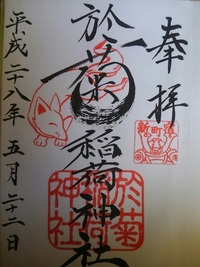 奉拝
新町宿
於菊稲荷神社
於菊稲荷神社
平成二十八年五月二十二日